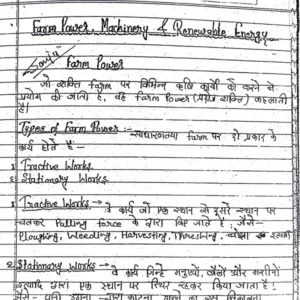 Farm Power, Machinery & Renewable Energy
Farm Power
जो शक्ति farm पर विभिन्न कृषि कार्यों को करने में
प्रयोग की जाती है, वह Farm Power (प्रक्षेत्र शक्ति) कहलाती
है।
Types of Farm Power :- साधारणतया farm पर दो प्रकार के
कार्य होते हैं -
1 Tractive Works.
2 Stationary Works
1 Tractive Works → वे कार्य जो एक स्थान से दूसरे स्थान पर
चलकर Pulling force के द्वारा किए जाते हैं। जैसे-
Ploughing, Weeding, Harvesting, Threshing
2. Stationary Works → वे कार्य जिन्हें मनुष्यों, बैलों और मशीनों
द्वारा एक स्थान पर स्थिर रहकर किया जाता है।
जैसे - पानी